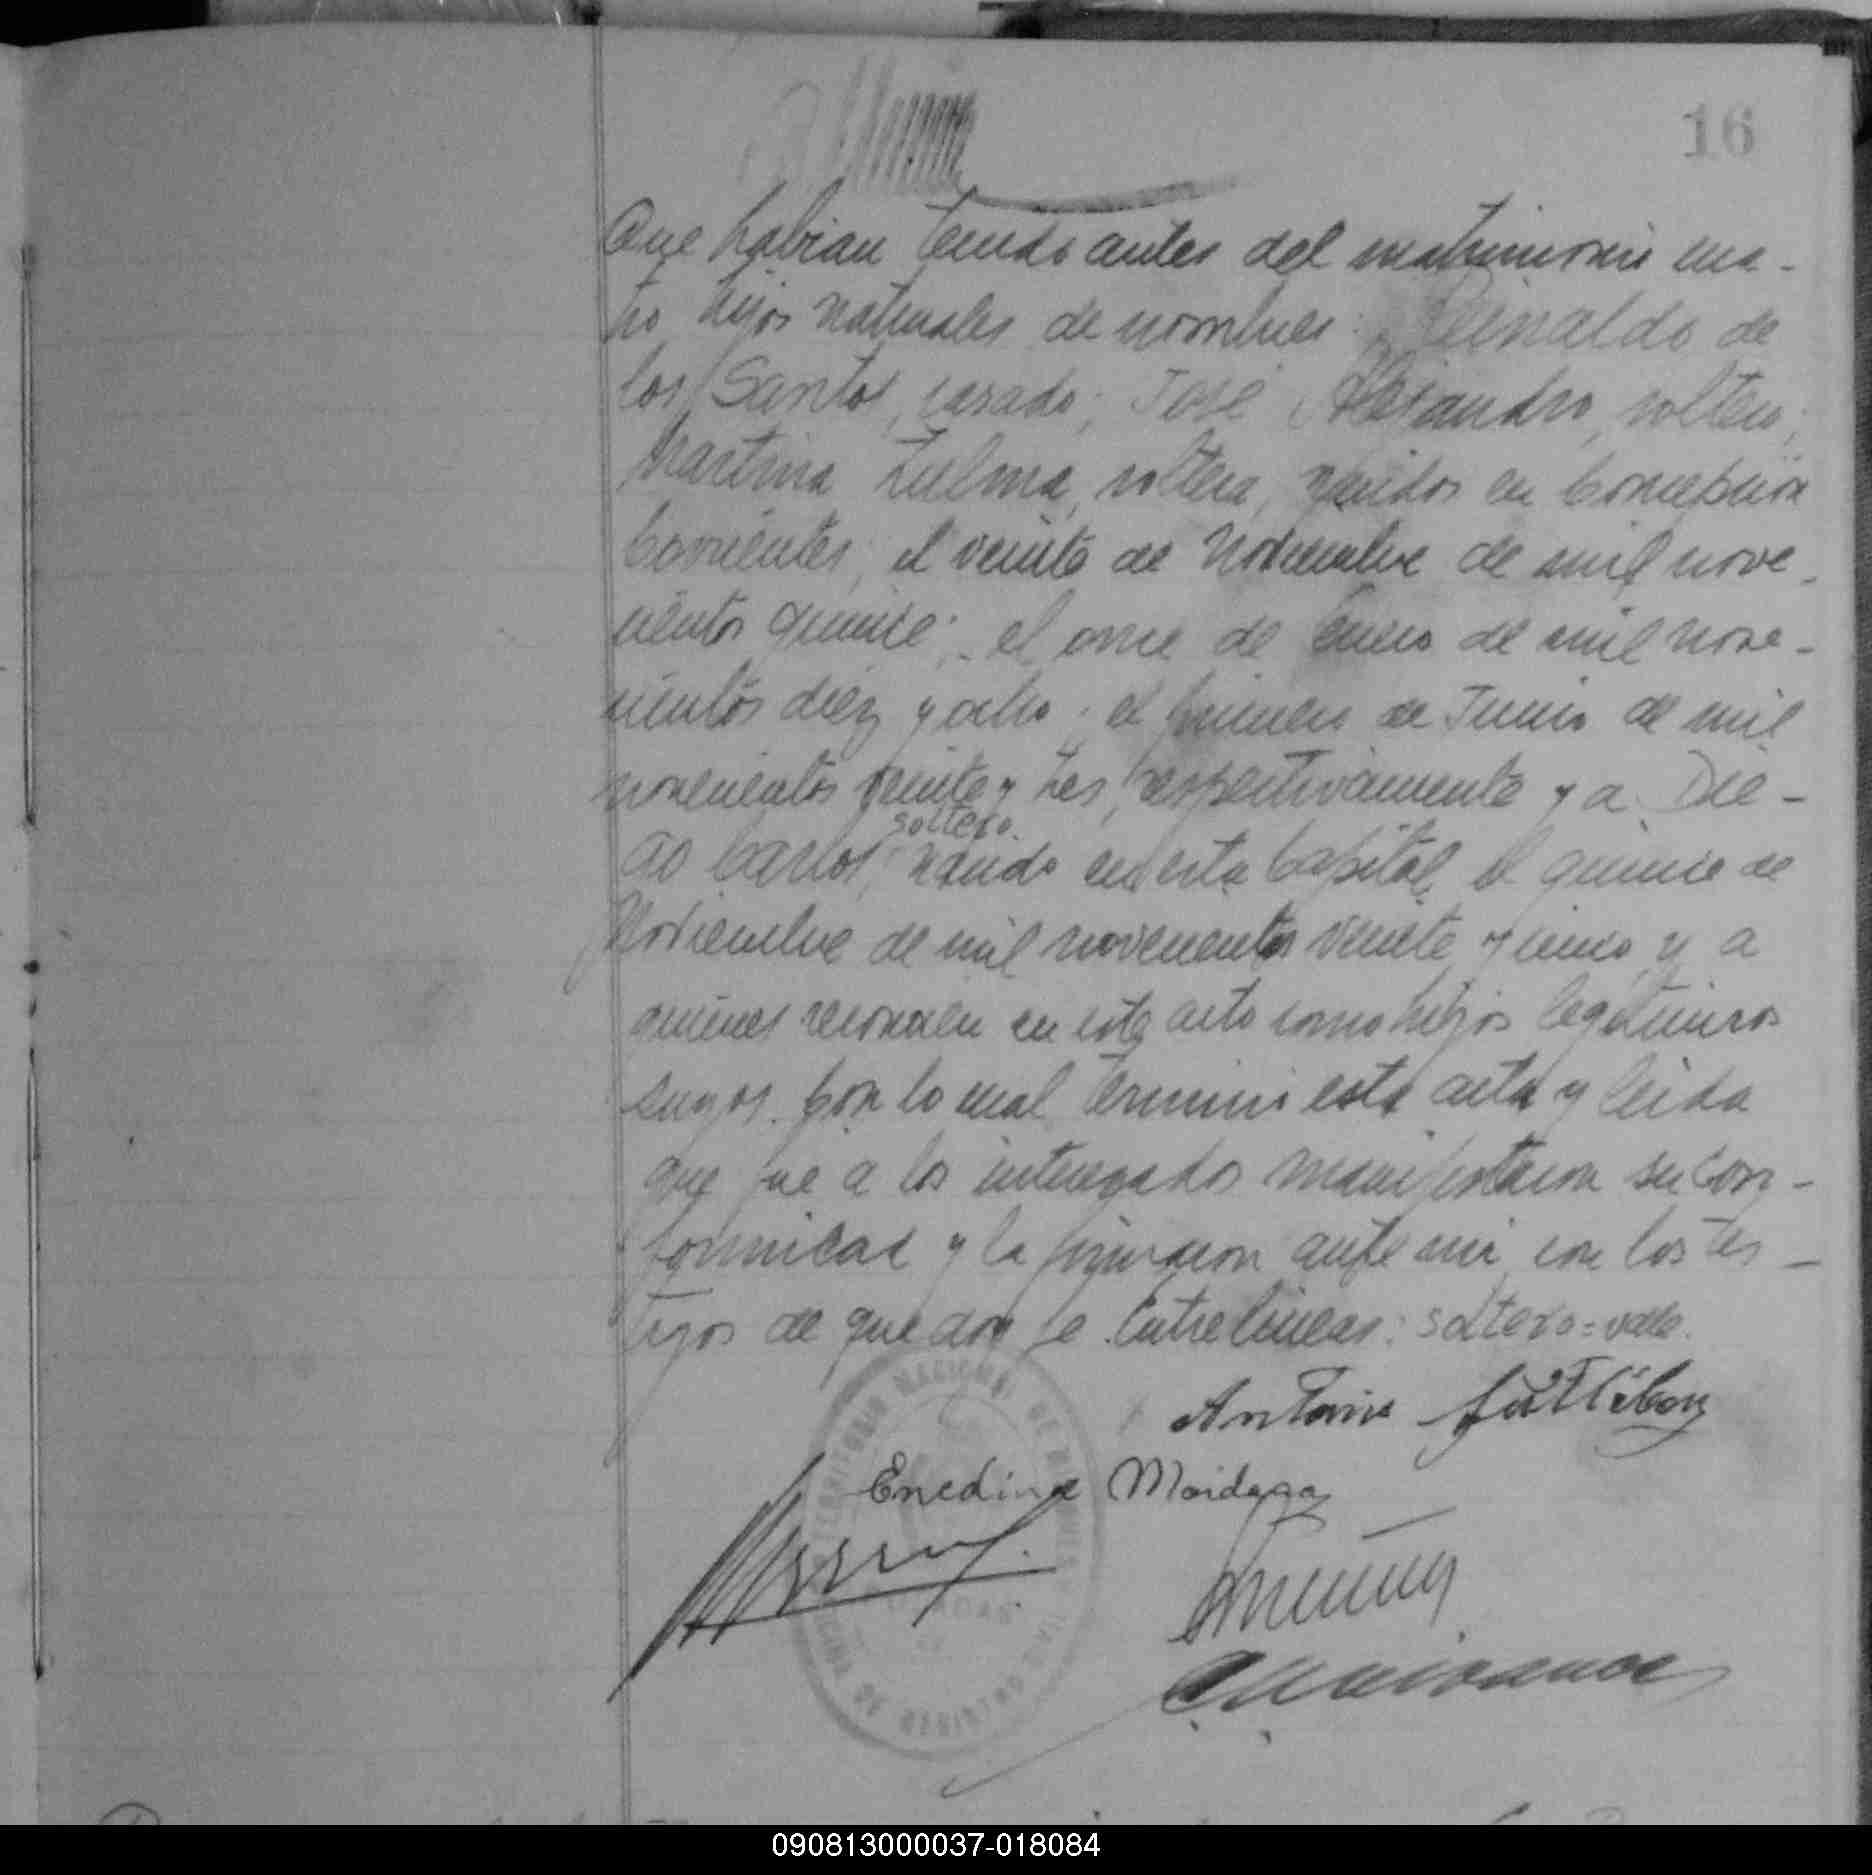 16
Que habian tenido antes del matrimonio cua-
tro hijos naturales de nombres: Reinaldo de
los Santos, casado; José Alejandro, soltero;
Martina Zulma, soltera, nacidos en Concepción
Corrientes, el veinte de Noviembre de mil nove-
cientos quince; el once de Enero de mil nove-
cientos diez y ocho; el primero de Junio de mil
novecientos veinte y tres, respectivamente y a Die-
soltero
go Carlos, nacido en esta Capital, el quince de
Noviembre de mil novecientos veinte y cinco, y a
quienes reconocen en este acto como hijos legitimos
suyos. Con lo cual terminó esta acta y leida
que fue a los interesados manifestaron su con-
formidad y la firmaron ante mi con los tes-
tigos de que doy fe. Entrelineas: soltero = vale.
Antonio
Enedina
REGISTRO
090813000037-018084